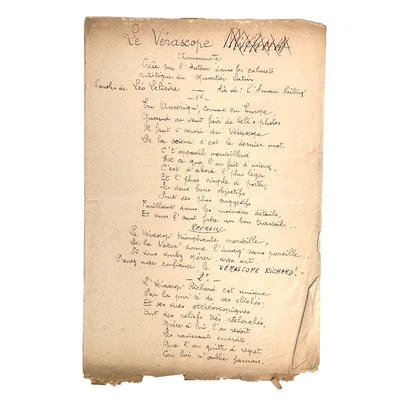 Le Vérascope
Chansonnette
Créée par l'Auteur dans les cabarets
artistiques du Quartier Latin
Paroles de Léo Lelièvre — Air de: l'Amour boiteux
1er
En Amériqu', comme en Europe
Quand on veut fair' de bell's photos
Il faut s'servir du Vérascope
De la scienc' c'est le dernier mot.
C't appareil merveilleux
Est ce que l'on fait d'mieux,
C'est d'abord l'plus léger
Et l'plus simple à porter,
Ses deux bons objectifs
Sont des plus suggestifs
Fouillant dans les moindres détails,
Et vous l'sont faire un bon travail..
Refrain
Le Vérascop' triomphante merveille,
De la Natur' donne l'imag' sans pareille
Si vous voulez opérer avec art
Prenez avec confiance le VÉRASCOPE RICHARD! —
2e
L'Vérascop' Richard est unique
Par la pur'té de ses clichés
Et ses vues stéréoscopiques
Ont des reliefs très recherchés.
Grâce à lui l'on revoit
Les ravissants endroits
Que l'on quitte à regret
Car lui n'oublie jamais.